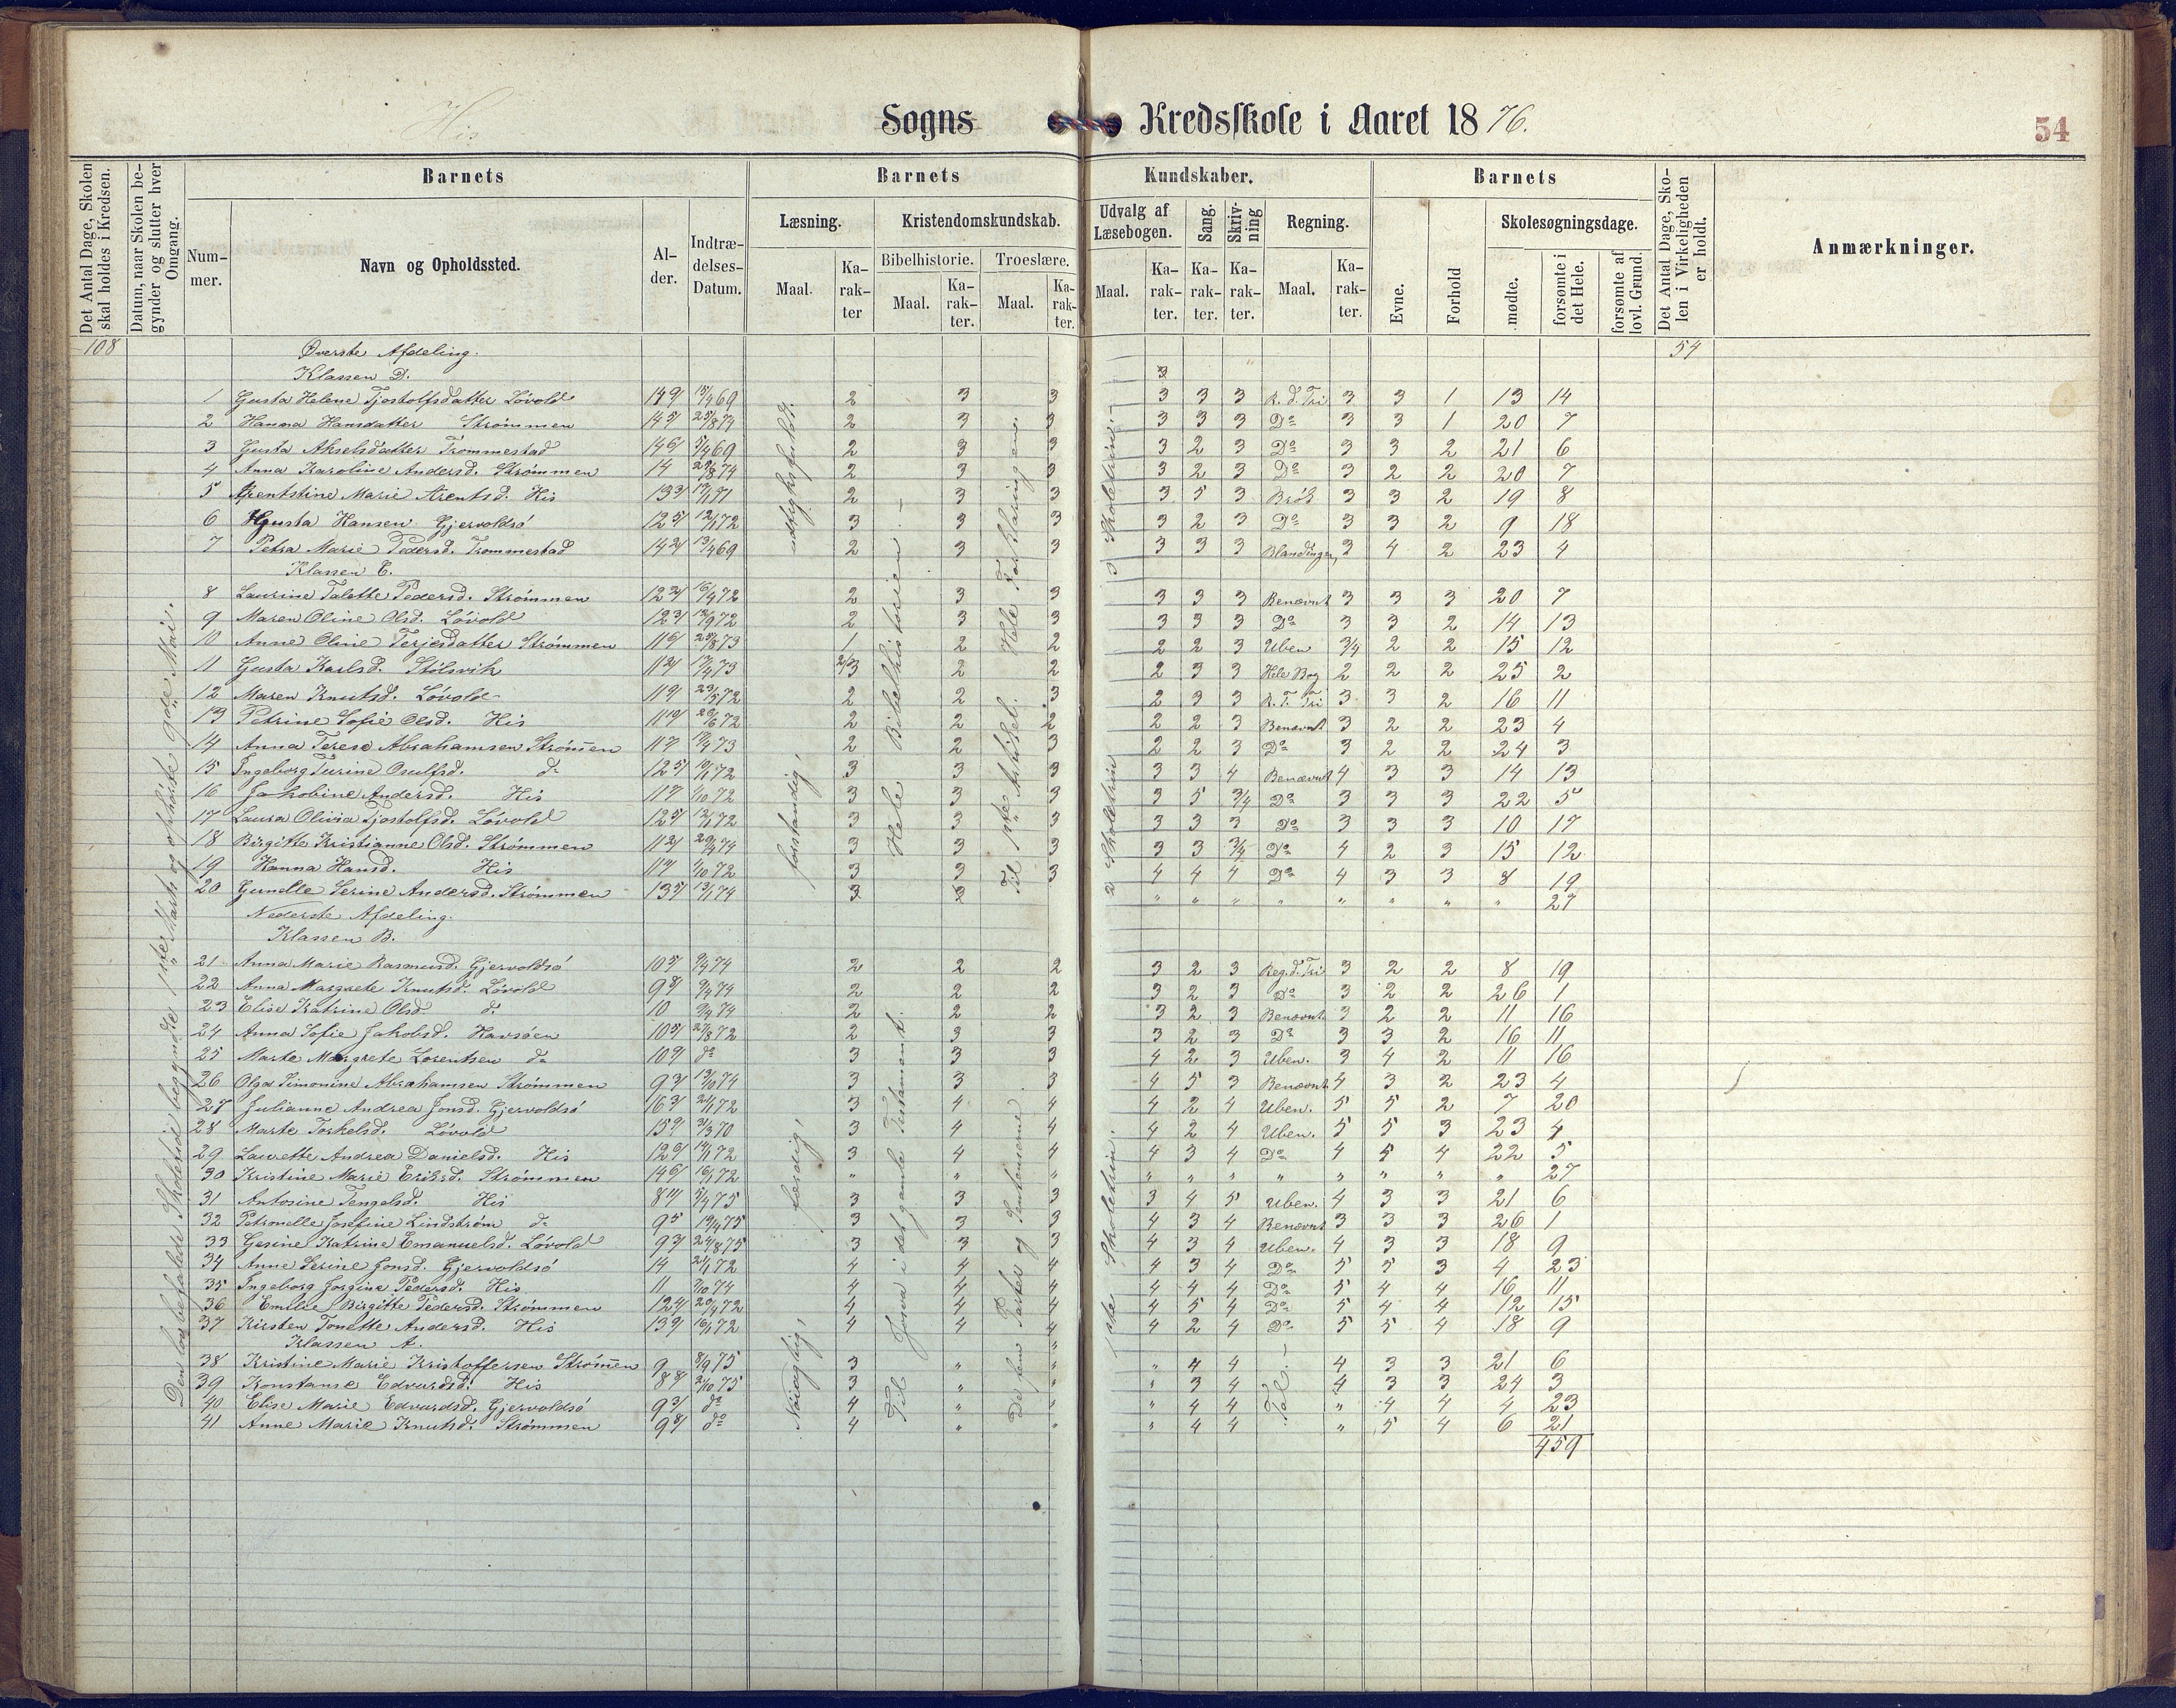 His Sogns Kredsskole i Aaret 1876. 54
Det Antal Dage, Skolen skal holdes i Kredsen.
Datum, naar Skolen begynder og slutter hver Omgang.
Barnets
Nummer.
Navn og Opholdssted.
Alder.
Indtrædelses-Datum.
Barnets Kundskaber.
Læsning.
Maal.
Karakter
Kristendomskundskab.
Bibelhistorie.
Maal.
Karakter.
Troeslære.
Maal.
Karakter.
Udvalg af Læsebogen.
Maal.
Karakter.
Sang.
Karakter.
Skrivning
Karakter.
Regning.
Maal.
Karakter.
Barnets
Evne.
Forhold
Skolesøgningsdage.
mødte.
forsømte i det Hele.
forsømte af lovl. Grund.
Det Antal Dage, Skolen i Virkeligheden er holdt.
Anmærkninger.
108 Øverste Afdeling. 54
Klassen D.
1 Gusta Helene Tjostolfsdatter Løvold 2 3 3 3 3 3 R. d. Tri 3 3 1 13 14
2 Hanna Hansdatter Strømmen 2 3 3 3 3 3 Do 3 3 1 20 7
3 Gusta Akselsdatter Trommestad 2 3 3 3 2 3 Do 3 3 2 21 6
4 Anna Karoline Andersd. Strømmen 14 2 3 3 3 2 3 Do 3 2 2 20 7
5 Arentstine Marie Arentsd. His 2 3 3 3 5 3 Brøk 3 3 2 19 8
6 Gusta Hansen Gjervoldsø 3 3 3 3 2 3 Do 3 3 2 9 18
7 Petra Marie Pedersd. Trommestad 2 3 3 3 3 3 Blandinger, 3 4 2 23 4
Klassen C.
8 Laurine Talette Pedersd. Strømmen 2 3 3 3 3 3 Benævnt 3 3 3 20 7
9 Maren Oline Olsd. Løvold 2 3 3 3 3 3 Do 3 3 2 14 13
10 Anne Oline Terjesdatter Strømmen 1 2 2 2 2 3 Uben 3/4 2 2 15 12
11 Gusta Karlsd. Stølsvik 2/3 2 2 2 3 3 Hele Bog 2 2 2 25 2
12 Maren Knutsd. Løvold 2 2 3 2 3 3 R. T. Tri 3 3 2 16 11
13 Petrine Sofie Olsd. His 2 2 2 2 2 3 Benævnt 3 2 2 23 4
14 Anna Terese Abrahamsen Strømmen 2 2 3 2 2 3 Do 3 2 2 24 3
15 Ingeborg Turine Osulfsd. do 3 3 3 3 3 4 Benævnt 4 3 3 14 13
16 Jakobine Andersd. His 3 3 3 3 5 3/4 Do 3 3 3 22 5
17 Laura Olivia Tjostolfsd. Løvold 3 3 3 3 3 3 Do 3 3 3 10 17
18 Birgitte Kristianne Olsd. Strømmen 3 3 3 3 3 3/4 Do 4 2 3 15 12
19 Hanna Hansd. His 3 3 3 4 4 4 Do 4 3 3 8 19
20 Gunelle Serine Andersd. Strømmen 3 3 " " " " " " " " 27
Nederste Afdeling.
Klassen B.
21 Anna Marie Rasmusd. Gjervoldsø 2 2 2 3 2 3 Reg. d. Tri 3 2 2 8 19
22 Anna Margrete Knutsd. Løvold 2 2 2 3 2 3 Do 3 2 2 26 1
23 Elise Katrine Olsd do 10 2 2 2 3 2 3 Benævnt. 3 2 2 11 16
24 Anna Sofie Jakobsd. Havsøen 2 3 3 3 2 3 Do 3 3 2 16 11
25 Marte Margrete Lorentsen do do 3 3 3 4 2 3 Uben. 3 4 2 11 16
26 Olga Simonine Abrahamsen Strømmen 3 3 3 4 5 3 Benævnt 4 3 2 23 4
27 Julianne Andrea Jonsd. Gjervoldsø 3 4 4 4 2 4 Uben. 5 5 2 7 20
28 Marte Torkelsd. Løvold 3 4 4 4 2 4 Uben. 5 5 3 23 4
29 Laurette Andrea Danielsd. His 3 4 4 4 3 4 Do 4 5 4 22 5
30 Kristine Marie Eriksd. Strømmen " " " " " " " " " " " 27
31 Antosine Tengelsd. His 3 3 3 3 4 5 Uben. 4 3 3 21 6
32 Petronelle Josefine Lindstrøm do 3 3 3 4 3 4 Benævnt 3 3 3 26 1
33 Gesine Katrine Emanuelsd. Løvold 3 3 3 4 3 4 Uben. 4 3 3 18 9
34 Anne Serine Jonsd. Gjervoldsø 14 4 4 4 4 3 4 Do 5 5 3 4 23
35 Ingeborg Jørgine Pedersd. His 11 4 4 4 4 4 4 Do 5 4 4 16 11
36 Emilie Birgitte Pedersd. Strømmen 4 4 4 4 5 4 Do 5 4 4 12 15
37 Kirsten Tonette Andersd. His 4 4 4 4 2 4 Do 5 5 4 18 9
Klassen A.
38 Kristine Marie Kristoffersen Strømmen 9 8/9 75 3 " " " 4 4 4 3 3 21 6
39 Konstanse Edvardsd. His 3 " " " 3 4 4 3 3 24 3
40 Elise Marie Edvardsd. Gjervoldsø do 4 " " " 4 4 " 4 4 4 23
41 Anne Marie Knutsd. Strømmen do 4 " " " 4 4 " 5 4 6 21
459
Den lovbefalede Skoletid begyndte 1ste Marts og ophørte 9de Mai.
udtryksfuldt.
forstandig,
færdig,
Nøiagtig,
Hele Bibelhistorien. —
Til Josva i det gamle Testament.
Hele Forklaringen.
Til 1ste Artikel.
De fem Parter og
3 Skoletrin. —
2 Skoletrin
1ste Skoletrin.
Tal. —